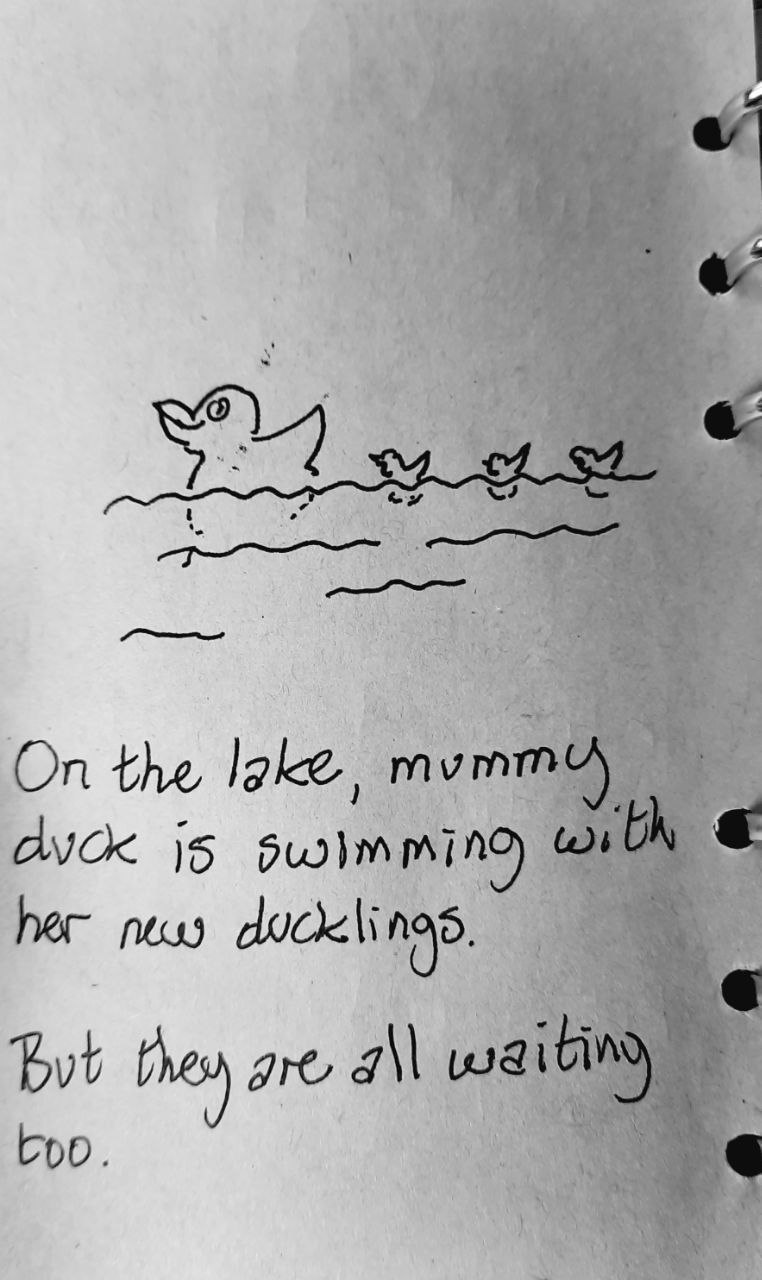 On the lake, mummy
duck is swimming with
her new ducklings.
But they are all waiting
too.